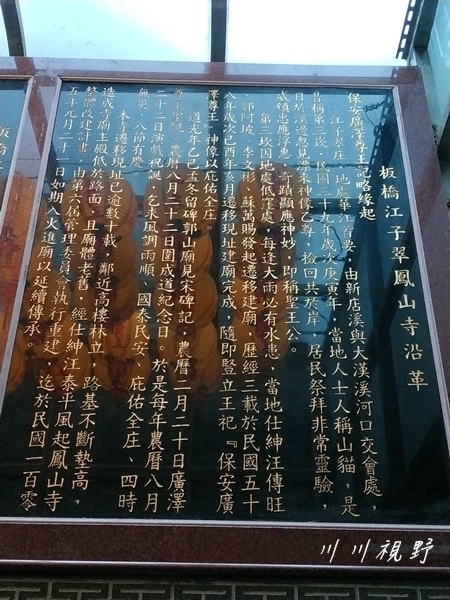 板橋江子翠鳳山寺沿革
保安廣澤尊王記略緣起
江子翠庄、地處華江百要，由新店溪與大漢溪河口交會處，
昔稱第三崁，民國三十九年歲次庚寅年，當地人士人稱山貓，是
日於溪邊忽見漂來神像乙尊，撿回共於岸，居民祭拜非常靈驗，
咸稱忠應浮惠，奇蹟顯應神妙，即稱聖王公。
第三崁因地處低窪處，每逢大雨必有水患，當地仕紳汪傳旺
、郭阿坡、李文彬、蘇萬賜發起遷移建廟，歷經三載於民國五十
八年歲次己酉年亥月遷移現址建廟完成，隨即豎立王祀『保安廣
澤尊王』神像以庇佑全庄。
道光年乙己孟冬留碑郭山廟見宋碑記，農曆二月二十日廣澤
尊王聖誕，農曆八月二十二日圍成道紀念日。於是每年農曆八月
二十二日帝戲祝誕，乞求風調雨順、國泰民安、庇佑全庄、四時
無災、八節有慶。
本寺遷移現址已逾數十載，鄰近高樓林立，路基不斷墊高，
造成寺廟主殿低於路面，且廟體老舊，經仕紳江泰平風起鳳山寺
整體改建計畫，由第六屆管理委員會執行重建，迄於民國一百零
五年九月二十一日如期入火進廟以延續傳承。
板橋江
川川視野